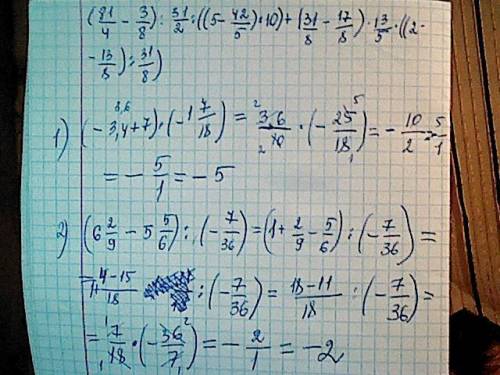 (81/4 - 3/8) : 31/2 : ((5 - 42/5) · 10) + (31/8 - 17/8) · 13/5 · ((2 -
- 13/8) : 31/8)
1) (- 3,4 + 7) · (- 1 7/18) = 3,6/10 · (- 25/18) = - 10/2 = 5/1
= - 5/1 = - 5
2) (6 2/9 - 5 5/6) : (- 7/36) = (1 + 2/9 - 5/6) : (- 7/36) =
= 1 + 4-15/18 : (- 7/36) = 18-11/18 : (- 7/36) =
= 7/18 · (- 36/7) = - 2/1 = - 2